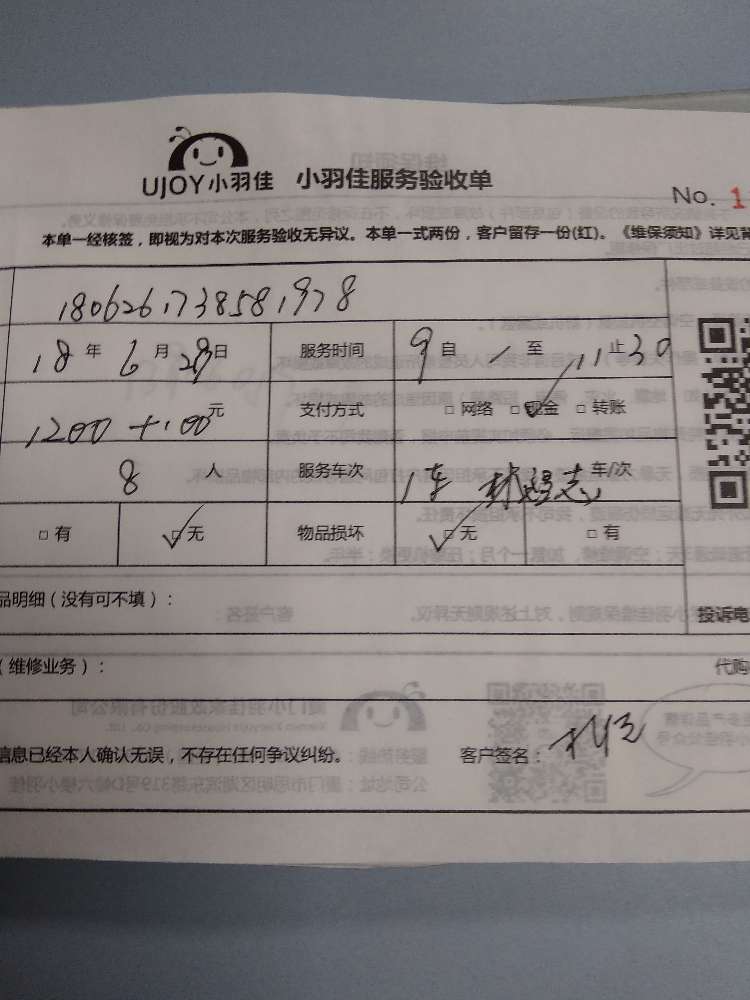 UJOY小羽佳 小羽佳服务验收单
No. 1
本单一经核签，即视为对本次服务验收无异议。本单一式两份，客户留存一份(红)。《维保须知》详见背
1806261738581978
18年6月28日 服务时间 9自 至 11止30
1200+100元 支付方式 □网络 ☑现金 □转账
8人 服务车次 1车 车/次
□有 ☑无 物品损坏 ☑无 □有
品明细（没有可不填）： 投诉电
（维修业务）： 代购
信息已经本人确认无误，不存在任何争议纠纷。 客户签名：